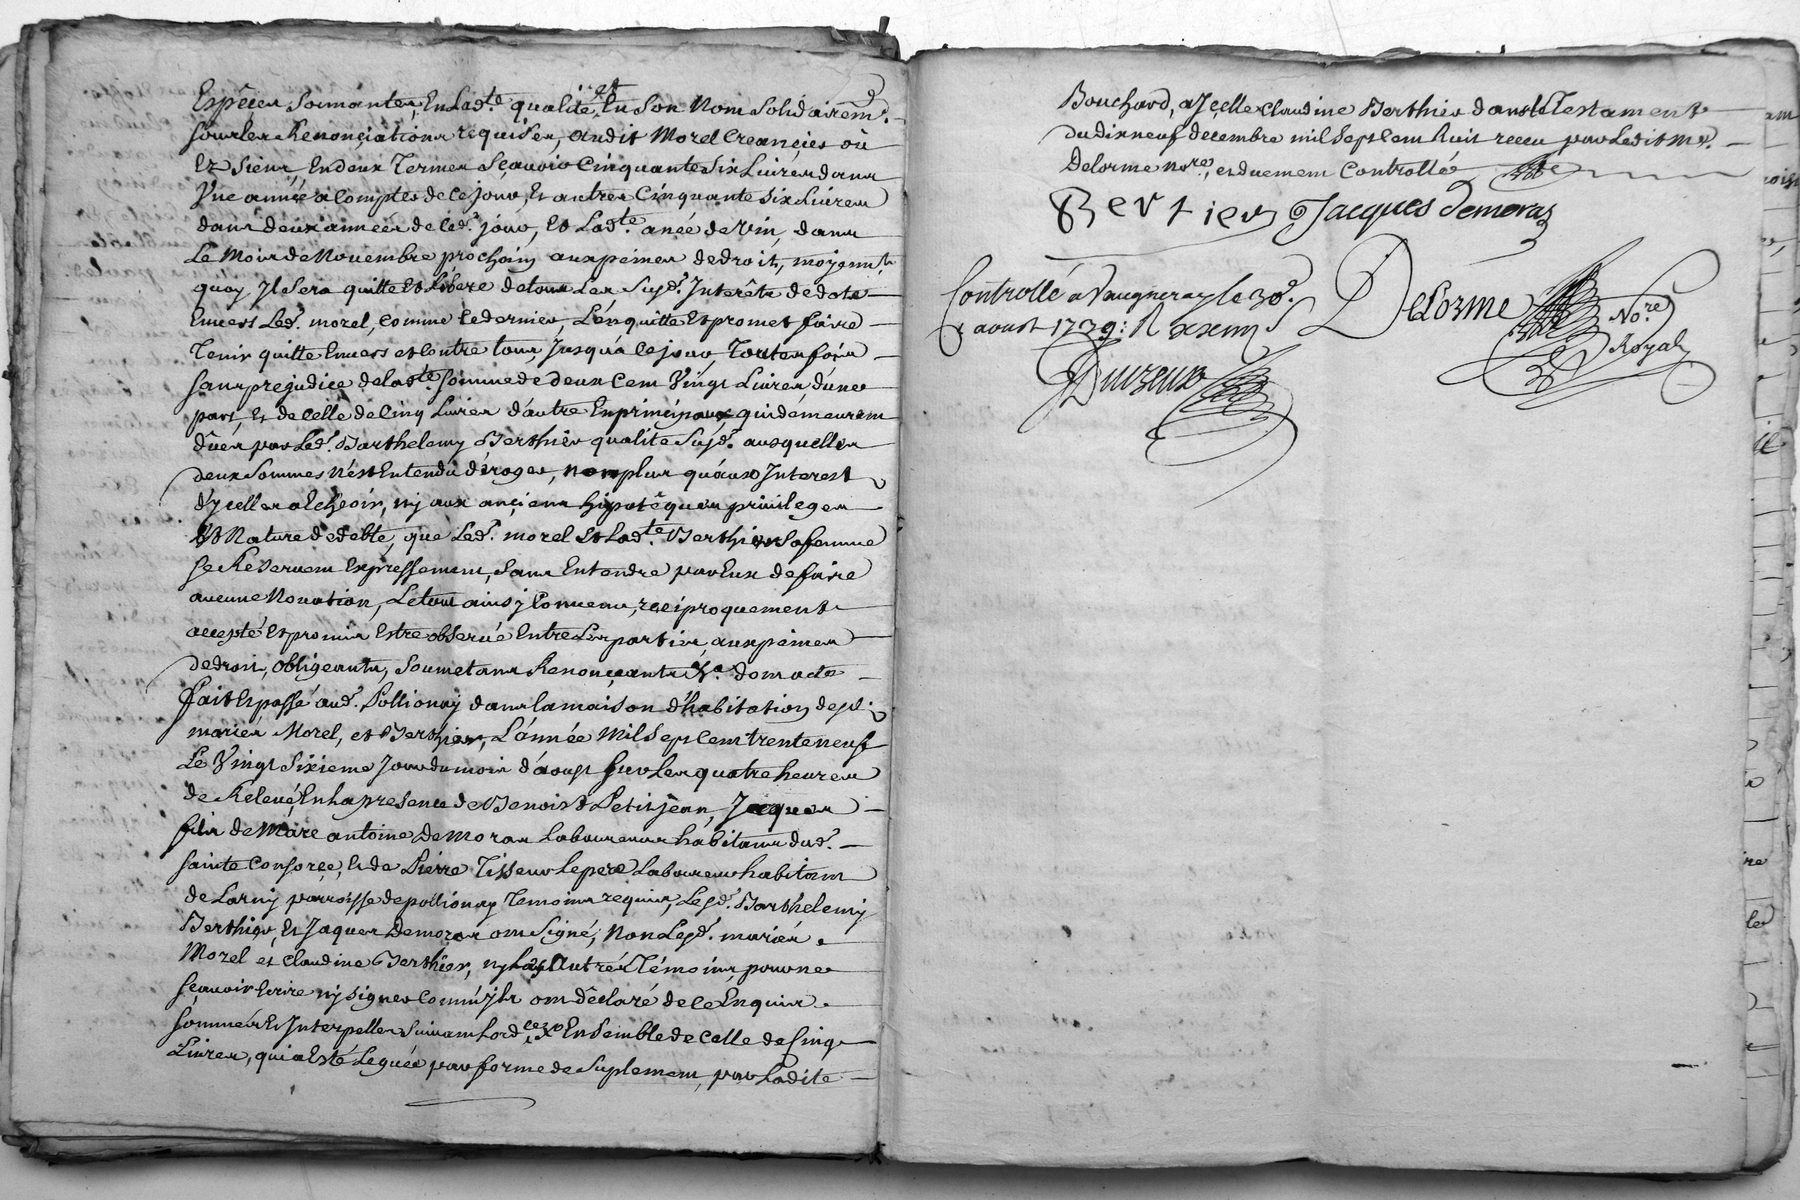 Espèces sonnantes, En Lad.te qualité, et En son Nom solidairem.t
sous les Renonçiations requises, audit Morel Creançier où
Ez siens, En deux Termes sçavoir Cinquante six Livres dans
Vne année à Compter de ce jour, Et autres Cinquante six Livres
dans deux années de Ced. jour, Et Lad.te anée de vin, dans
Le Mois de Novembre prochain aux peines de droit, moyenn.t
quoy Il sera quitte Et Libere de tous Les Susd. Interêts de dote
Envers Led. morel, comme ce dernier, L'en quitte Et promet faire
Tenir quitte Envers et Contre tous, Jusqu'à ce jour Toutes fois
sans prejudice de Lad.te somme de deux Cent Vingt Livres d'une
part, Et de celle de Cinq Livres d'autre En principaux, qui demeurent
dûes par Led. Barthelemy Berthier qualité Susd. ausquelles
deux sommes N'est Entendu déroger, non plus qu'aux Interest
d'ycelles a Echeoir, ny aux ançiens hipotêques privileges
Et Nature de debte, que Led. morel Et Lad.te Berthier sa femme
se Reservent Expressement, sans Entendre par Eux de faire
aucune Novation, Le tout ainsy Convenu, reciproquement
accepté Et promis Estre observé Entre Les parties, aux peines
de droit, obligeants, soumetans Renonçeants &.a dont acte
fait Et passé aud. Pollionay dans la maison d'habitation desd.
mariés Morel, et Berthier, L'année Mil sept cent trente neuf
Le Vingt Sixieme Jour du mois d'aoust sur Les quatre heures
de Relevé, En La presence de Benoist Petitjean, Jacques
fils de Marc antoine Demoras Laboureurs habitans dud.
sainte Consorçe, Et de Pierre Tisseur Le pere Laboureur habitant
de Larny parroisse de pollionay Temoins requis, Lesd. Barthelemy
Berthier, Et Jaques Demoras ont Signé, Non Lesd. mariés
Morel et Claudine Berthier, ny Les Autres Témoins, pour ne
sçavoir Ecrire ny signer Comm'ils ont dêclaré de ce Enquis
sommés Et Interpellés suivant L'ord.ce Ensemble de Celle de Cinq
Livres, qui a Esté Leguée par forme de Suplement, par Ladite
Bouchard, a Içelle Claudine Berthier dans le Testament
du dix neuf decembre mil Sept Cent huit receu par Ledit M.e
Delorme no.re, et duement Controllé
Bertier Jacques demoras
Controllé a Vaugneray le 30.
aoust 1739: R
Delorme No.re
Royal